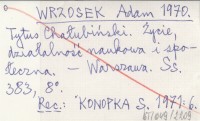 WRZOSEK Adam 1970.
Tytus Chałubiński. Życie,
działalność naukowa i spo-
łeczna. — Warszawa. Ss.
383, 8°.
Rec.: KONOPKA S. 1971: 6.